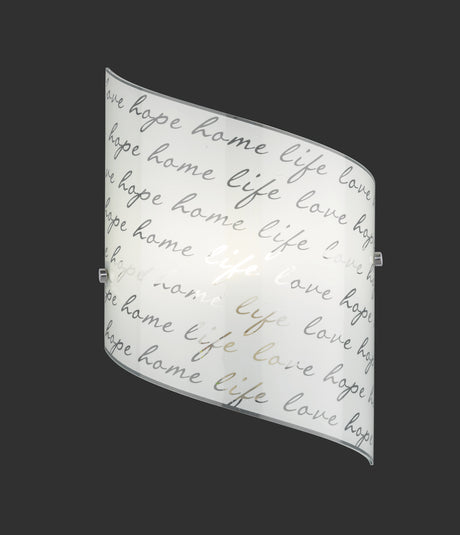 love hope home life love
hope home life love hope
love hope home life love
hope home life love hope
hope home life love
hope home life love hope
hope home life love hope